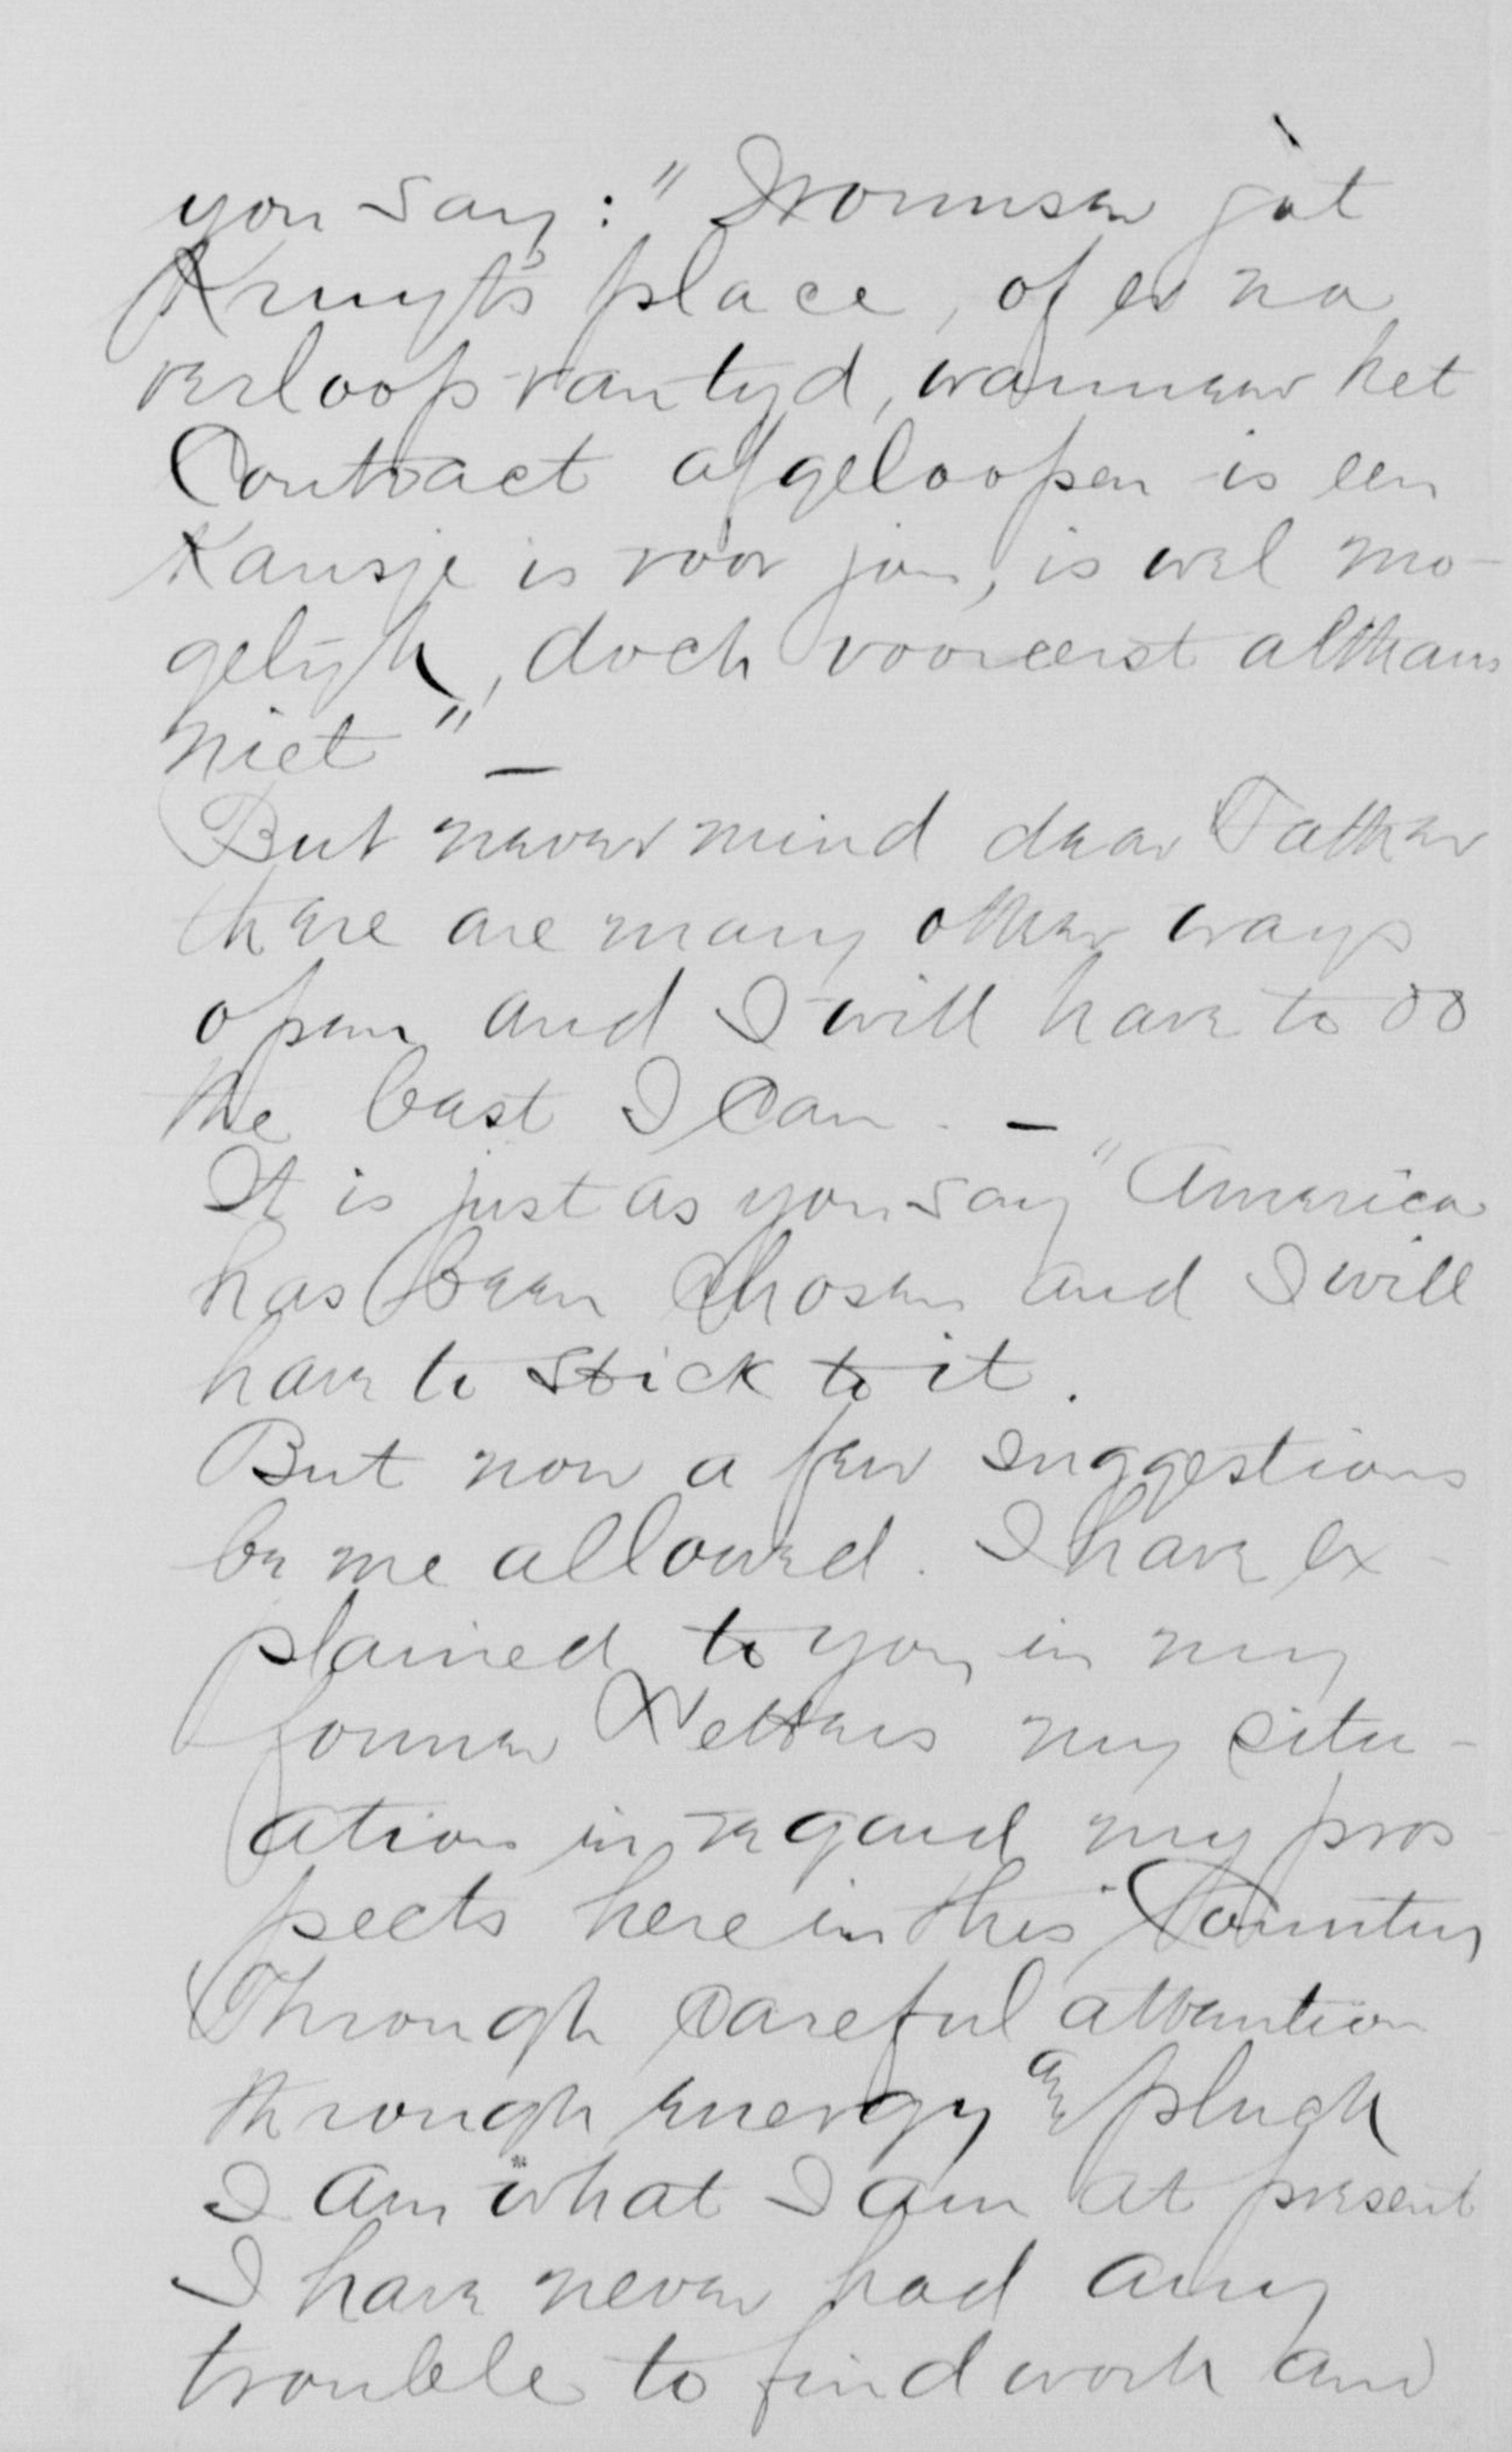 you say: " Dronnsen got
Kruyt's place, of er na
verloop van tyd, wanneer het
Contract afgeloopen is een
Kansje is voor jou, is wel mo-
gelijk, doch vooreerst althans
niet" —
But never mind dear Father
there are many other ways
open and I will have to do
the best I can. —
It is just as you say "America
has been chosen and I will
have to stick to it.
But now a few suggestions
be me allowed. I have ex-
plained to you in my
former Letters my situ-
ation in regard my pros-
pects here in this Country
Through careful attention
through energy and pluck
I am what I am at present
I have never had any
trouble to find work and